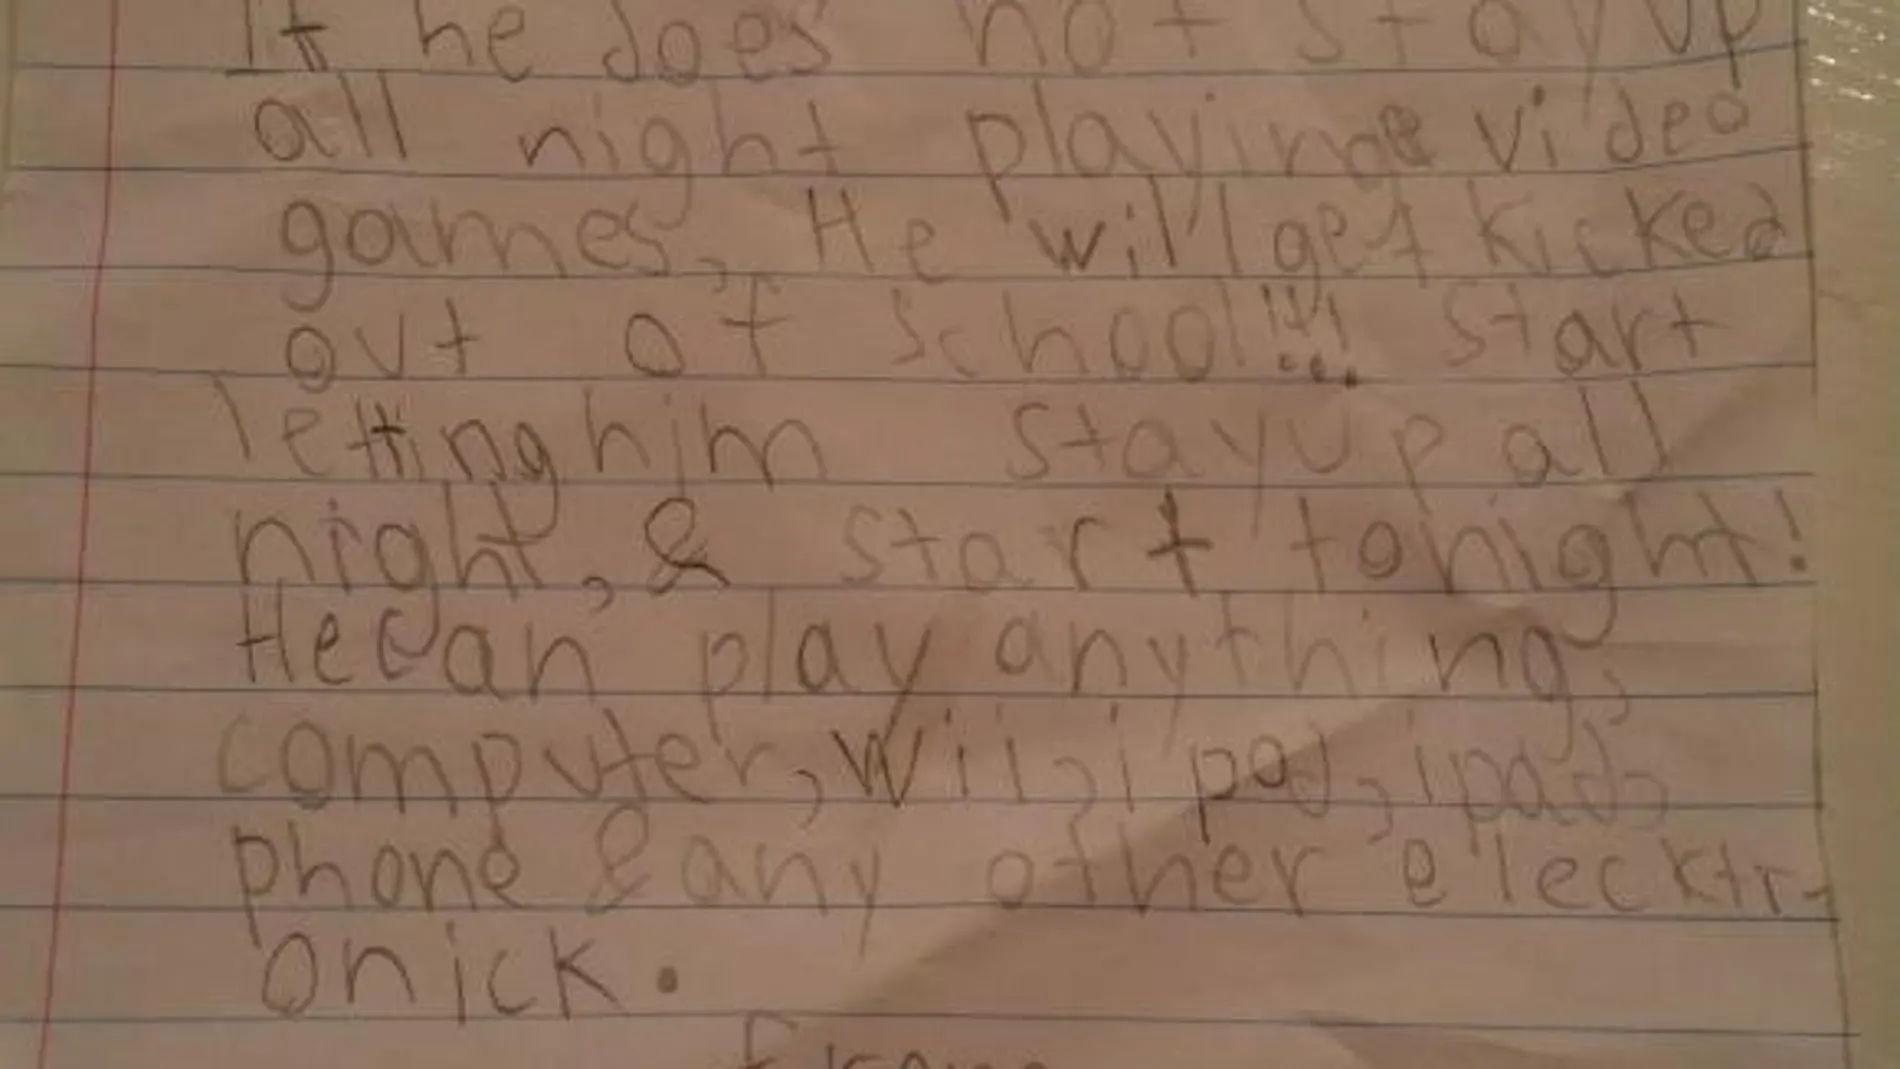 If he does not stay up
all night playing video
games, He will get kicked
out of school!!! Start
letting him stay up all
night, & start tonight!
He can play anything,
computer, Wii, ipod, ipad,
phone & any other elecktr-
onick.